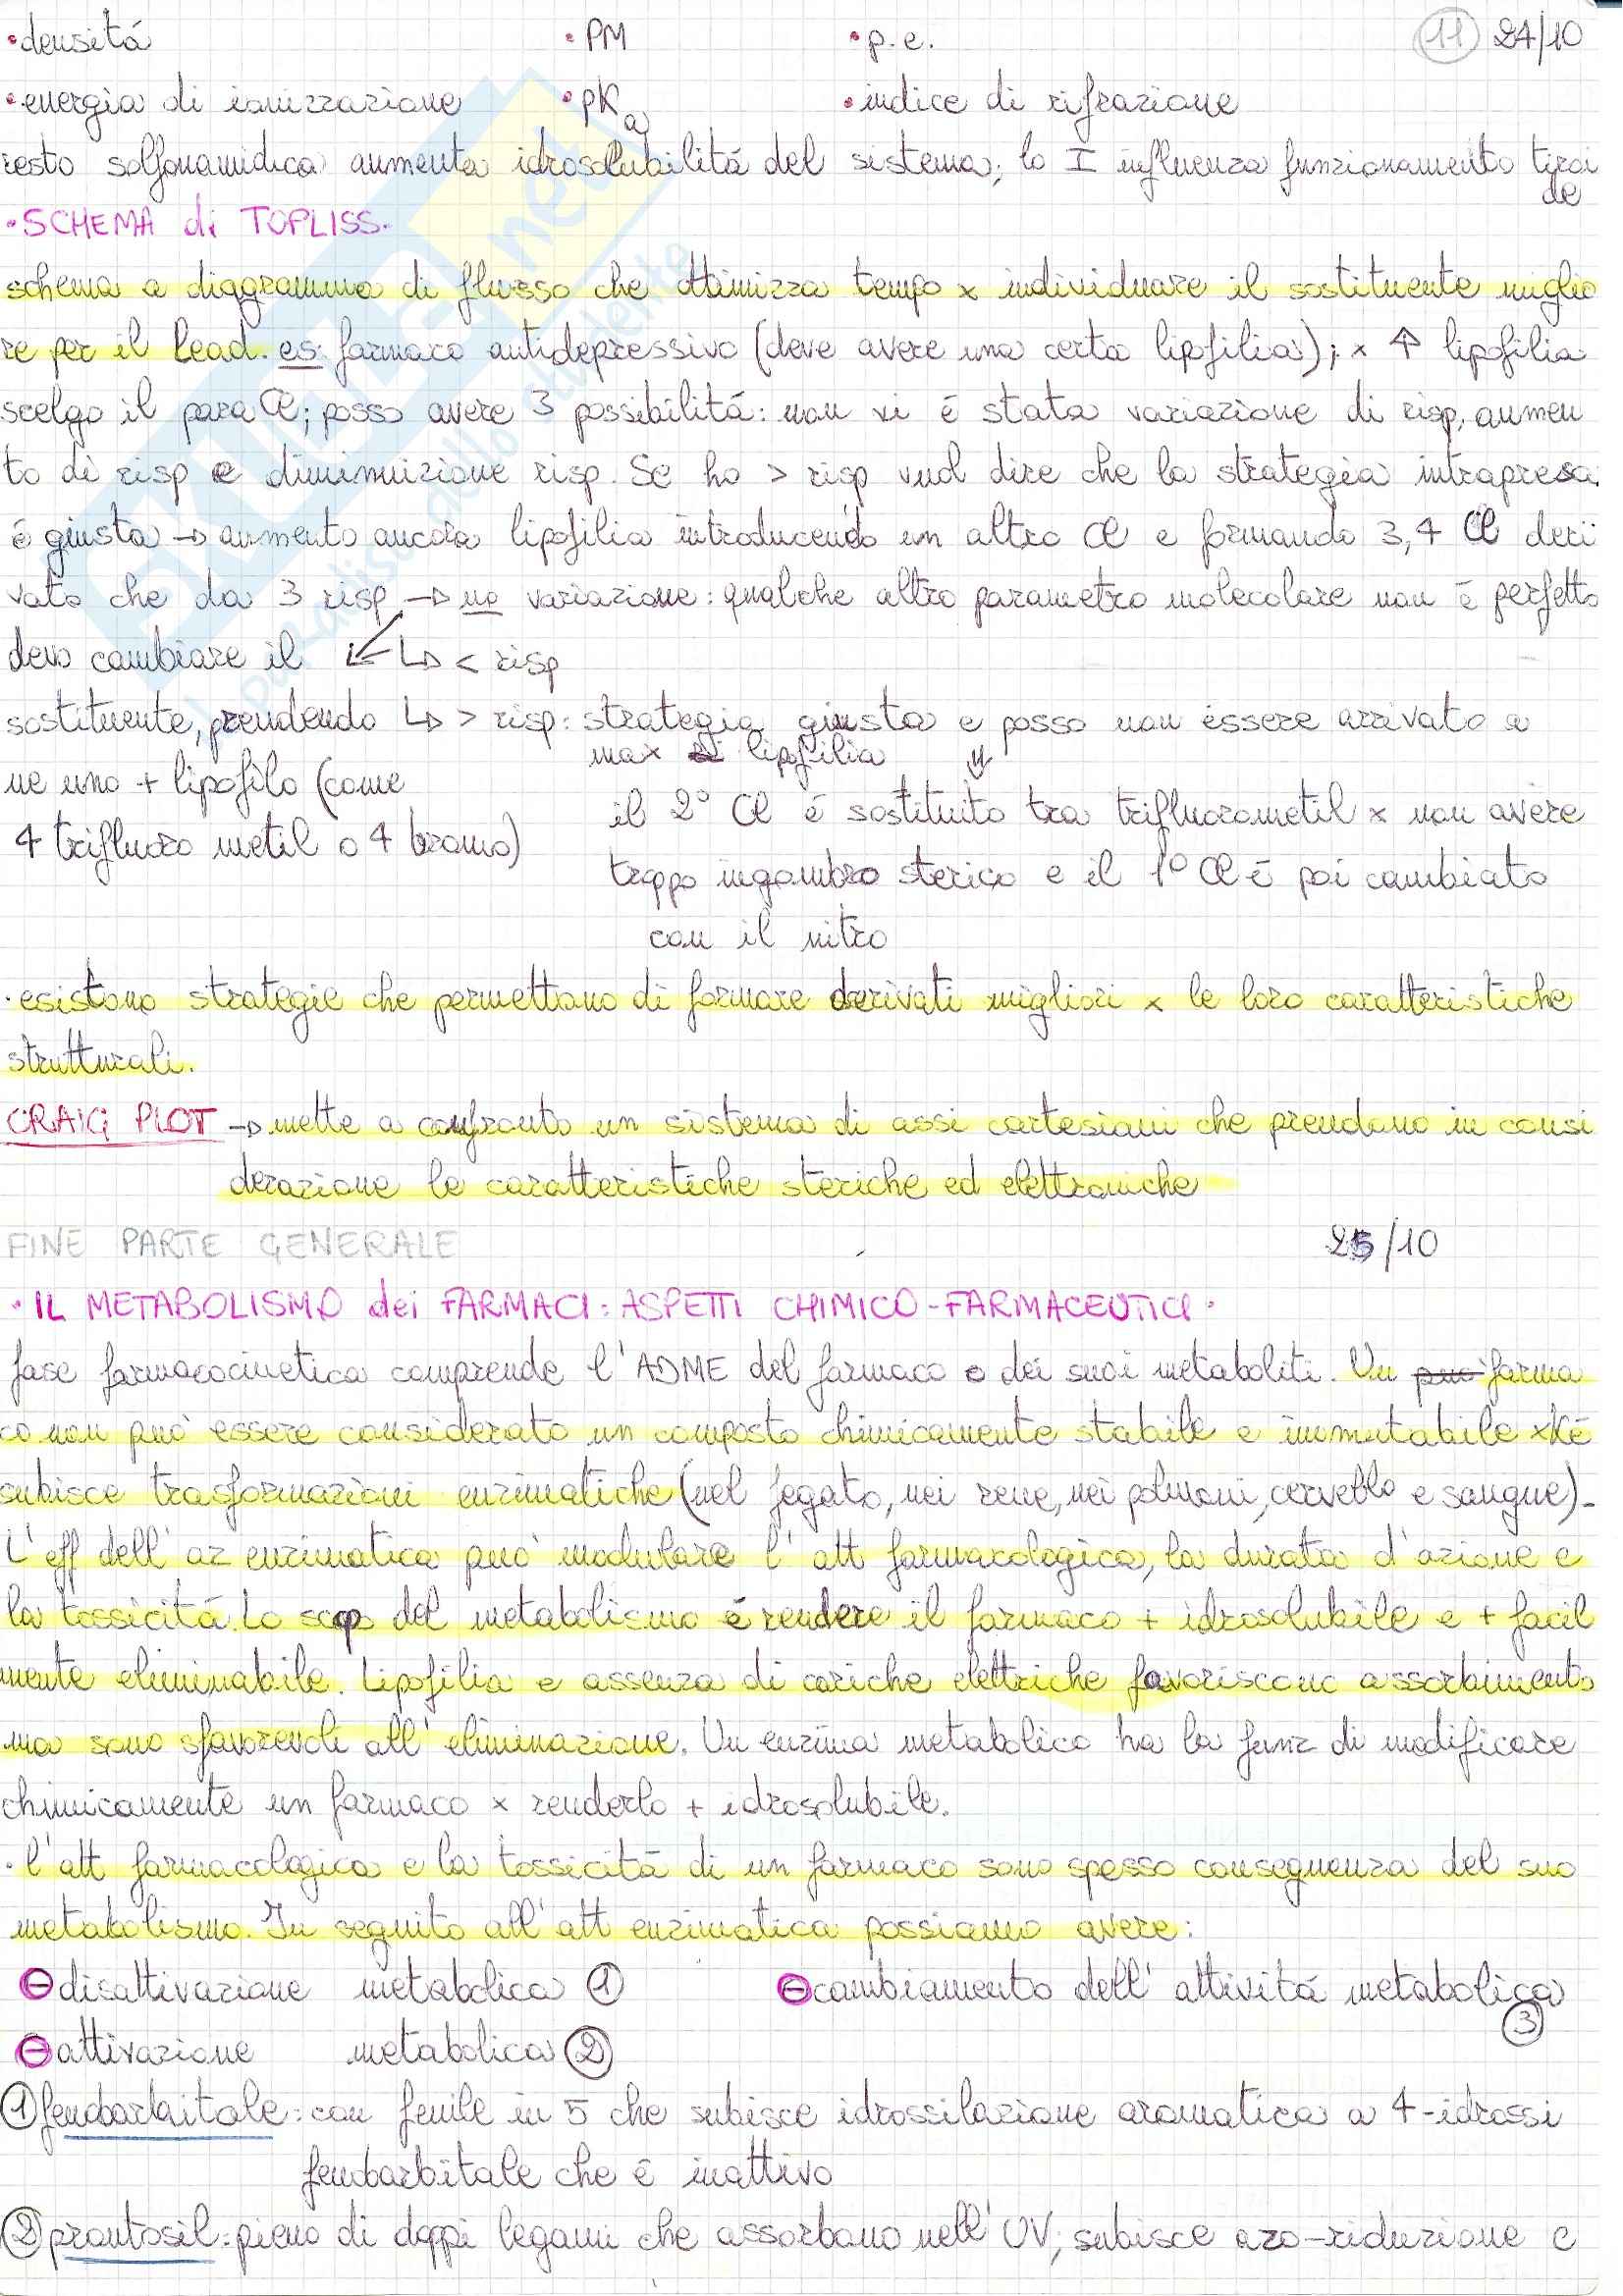 •densitá •PM •p.e. 11 24/10
•energia di ionizzazione •pKa •indice di rifrazione
resto solfonamidica aumenta idrosolubilitá del sistema; lo I influenza funzionamento tiroi
de
•SCHEMA di TOPLISS.
schema a diagramma di flusso che ottimizza tempo x individuare il sostituente miglio
re per il lead. es: farmaco antidepressivo (deve avere una certa lipofilia); x ↑ lipofilia
scelgo il para Cl; posso avere 3 possibilitá: non vi é stata variazione di risp, aumen
to di risp e diminuizione risp. Se ho > risp vuol dire che la strategia intrapresa
é giusta → aumento ancora lipofilia introducendo un altro Cl e formando 3,4 Cl deri
vato che da 3 risp → no variazione: qualche altro parametro molecolare non é perfetto
devo cambiare il ↙ ↳ < risp
sostituente, prendendo ↳ > risp: strategia giusta e posso non essere arrivato a
max di lipofilia ↓
ne uno + lipofilo (come
il 2° Cl é sostituito tra trifluorometil x non avere
4 trifluoro metil o 4 bromo)
troppo ingombro sterico e il 1° Cl é poi cambiato
con il nitro
•esistono strategie che permettono di formare derivati migliori x le loro caratteristiche
strutturali.
CRAIG PLOT → mette a confronto un sistema di assi cartesiani che prendono in consi
derazione le caratteristiche steriche ed elettroniche
FINE PARTE GENERALE 25/10
•IL METABOLISMO dei FARMACI: ASPETTI CHIMICO-FARMACEUTICI•
fase farmacocinetica comprende l'ADME del farmaco o dei suoi metaboliti. Un può farma
co non può essere considerato un composto chimicamente stabile e immutabile xké
subisce trasformazioni enzimatiche (nel fegato, nei rene, nei polmoni, cervello e sangue)-
L'eff dell'az enzimatica può modulare l'att farmacologica, la durata d'azione e
la tossicitá. Lo scopo del metabolismo é rendere il farmaco + idrosolubile e + facil
mente eliminabile. Lipofilia e assenza di cariche elettriche favoriscono assorbimento
ma sono sfavorevoli all'eliminazione. Un enzima metabolico ha la funz di modificare
chimicamente un farmaco x renderlo + idrosolubile.
•l'att farmacologica e la tossicitá di un farmaco sono spesso conseguenza del suo
metabolismo. In seguito all'att enzimatica possiamo avere:
⊖disattivazione metabolica ① ⊖cambiamento dell'attivitá metabolica
③
⊖attivazione metabolica ②
①fenobarbitale: con fenile in 5 che subisce idrossilazione aromatica a 4-idrossi
fenobarbitale che é inattivo
②prontosil: pieno di doppi legami che assorbono nell'UV; subisce azo-riduzione e